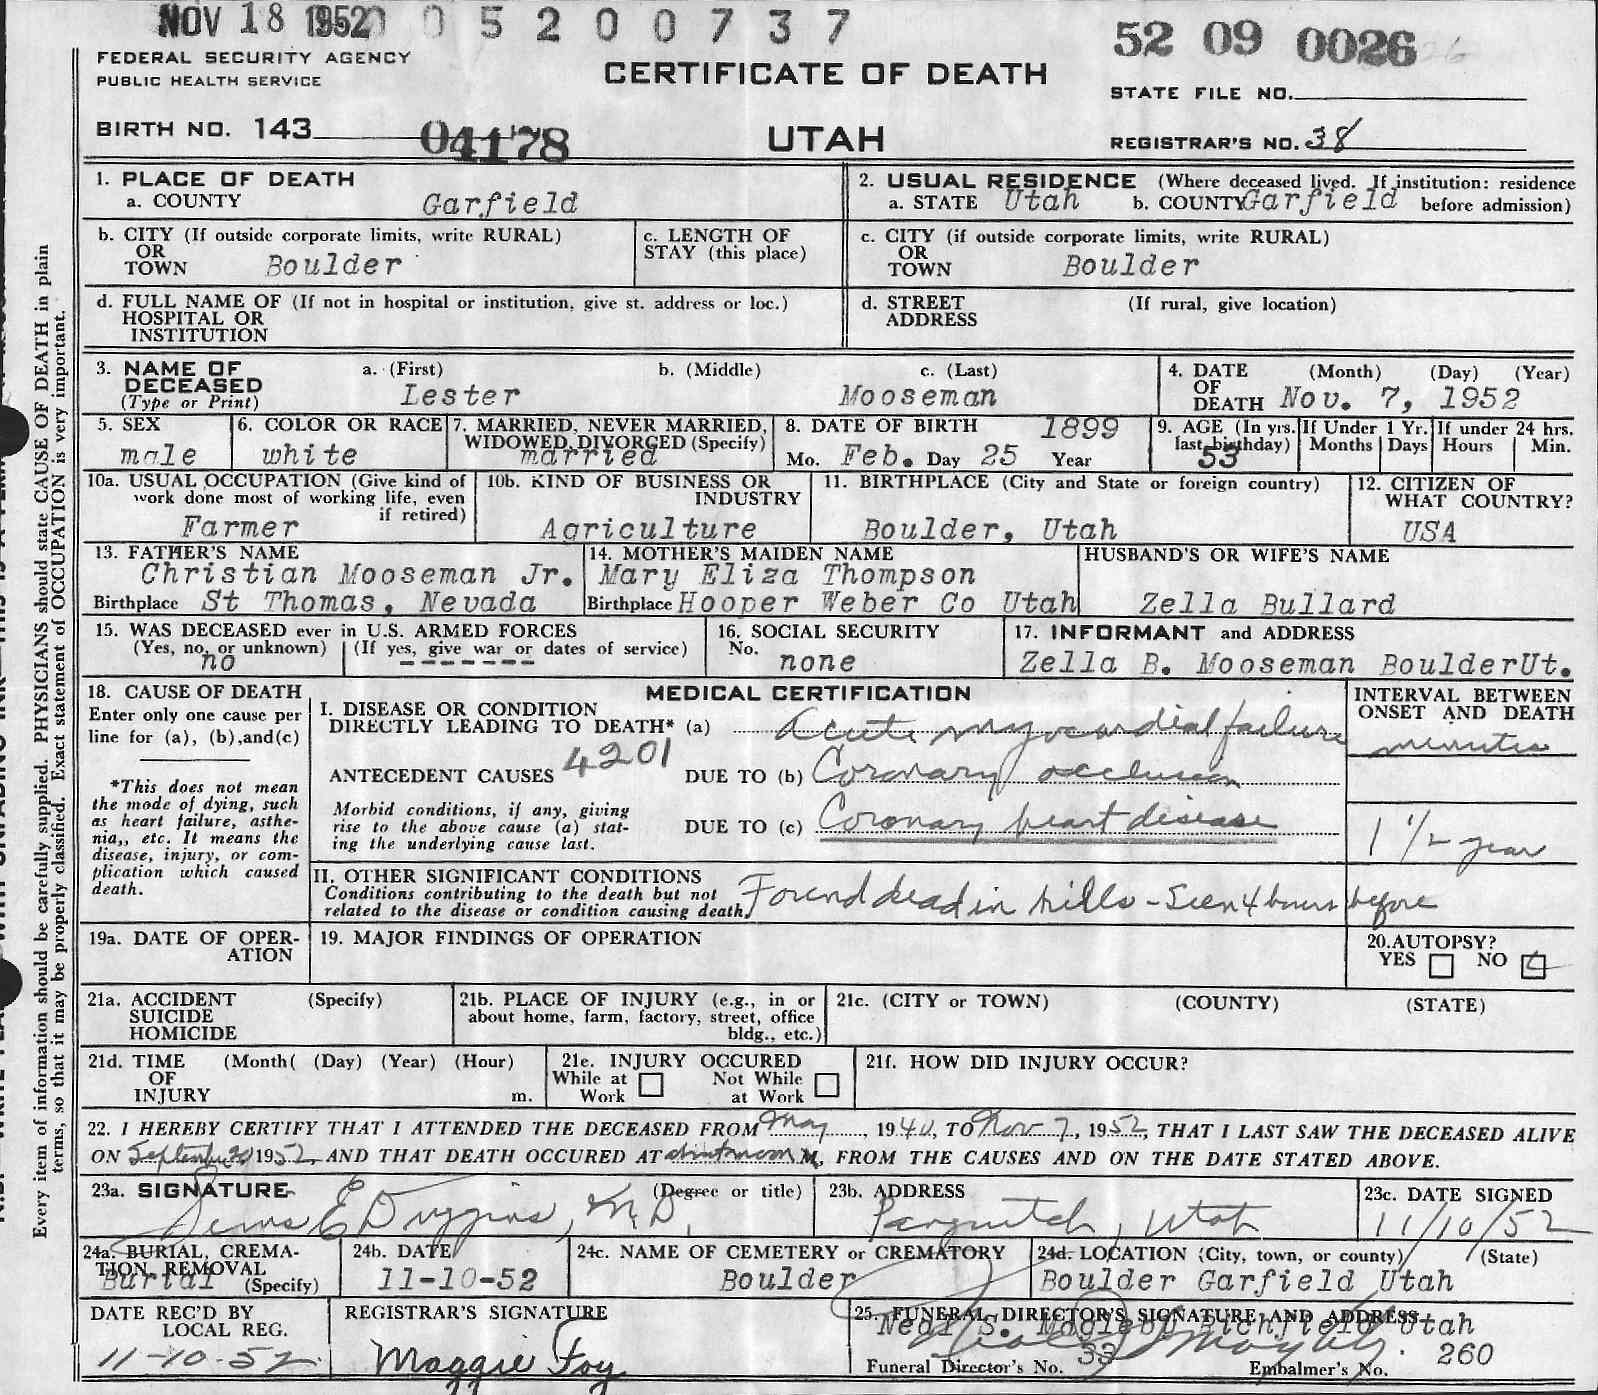 NOV 18 1952 0 5 2 0 0 7 3 7
52 09 0026
FEDERAL SECURITY AGENCY
PUBLIC HEALTH SERVICE
CERTIFICATE OF DEATH
STATE FILE NO.
BIRTH NO. 143 04178
UTAH
REGISTRAR'S NO. 38
1. PLACE OF DEATH
a. COUNTY Garfield
2. USUAL RESIDENCE (Where deceased lived. If institution: residence
a. STATE Utah b. COUNTY Garfield before admission)
b. CITY (If outside corporate limits, write RURAL)
OR
TOWN Boulder
c. LENGTH OF
STAY (this place)
c. CITY (if outside corporate limits, write RURAL)
OR
TOWN Boulder
d. FULL NAME OF (If not in hospital or institution, give st. address or loc.)
HOSPITAL OR
INSTITUTION
d. STREET (If rural, give location)
ADDRESS
3. NAME OF a. (First) b. (Middle) c. (Last)
DECEASED Lester Mooseman
(Type or Print)
4. DATE (Month) (Day) (Year)
OF
DEATH Nov. 7, 1952
5. SEX
male
6. COLOR OR RACE
white
7. MARRIED, NEVER MARRIED,
WIDOWED, DIVORCED (Specify)
married
8. DATE OF BIRTH 1899
Mo. Feb. Day 25 Year
9. AGE (In yrs.
last birthday)
53
If Under 1 Yr.
Months Days
If under 24 hrs.
Hours Min.
10a. USUAL OCCUPATION (Give kind of
work done most of working life, even
if retired)
Farmer
10b. KIND OF BUSINESS OR
INDUSTRY
Agriculture
11. BIRTHPLACE (City and State or foreign country)
Boulder, Utah
12. CITIZEN OF
WHAT COUNTRY?
USA
13. FATHER'S NAME
Christian Mooseman Jr.
Birthplace St Thomas, Nevada
14. MOTHER'S MAIDEN NAME
Mary Eliza Thompson
Birthplace Hooper Weber Co Utah
HUSBAND'S OR WIFE'S NAME
Zella Bullard
15. WAS DECEASED ever in U.S. ARMED FORCES
(Yes, no, or unknown) (If yes, give war or dates of service)
no -------
16. SOCIAL SECURITY
No.
none
17. INFORMANT and ADDRESS
Zella B. Mooseman BoulderUt.
18. CAUSE OF DEATH
Enter only one cause per
line for (a), (b),and(c)
*This does not mean
the mode of dying, such
as heart failure, asthe-
nia,, etc. It means the
disease, injury, or com-
plication which caused
death.
MEDICAL CERTIFICATION
I. DISEASE OR CONDITION
DIRECTLY LEADING TO DEATH* (a) Acute myocardial failure
ANTECEDENT CAUSES 4201 DUE TO (b) Coronary occlusion
Morbid conditions, if any, giving
rise to the above cause (a) stat-
ing the underlying cause last.
DUE TO (c) Coronary heart disease
INTERVAL BETWEEN
ONSET AND DEATH
minutes
1 1/2 year
II. OTHER SIGNIFICANT CONDITIONS
Conditions contributing to the death but not
related to the disease or condition causing death.
Found dead in hills - Seen 4 hours before
19a. DATE OF OPER-
ATION
19. MAJOR FINDINGS OF OPERATION
20.AUTOPSY?
YES NO
21a. ACCIDENT (Specify)
SUICIDE
HOMICIDE
21b. PLACE OF INJURY (e.g., in or
about home, farm, factory, street, office
bldg., etc.)
21c. (CITY or TOWN) (COUNTY) (STATE)
21d. TIME (Month( (Day) (Year) (Hour)
OF
INJURY m.
21e. INJURY OCCURED
While at Not While
Work at Work
21f. HOW DID INJURY OCCUR?
22. I HEREBY CERTIFY THAT I ATTENDED THE DECEASED FROM May, 1940, TO Nov 7, 1952, THAT I LAST SAW THE DECEASED ALIVE
ON September 1952, AND THAT DEATH OCCURED AT M, FROM THE CAUSES AND ON THE DATE STATED ABOVE.
23a. SIGNATURE (Degree or title)
Sims E Duggins, M.D.
23b. ADDRESS
Panguitch, Utah
23c. DATE SIGNED
11/10/52
24a. BURIAL, CREMA-
TION, REMOVAL
Burial (Specify)
24b. DATE
11-10-52
24c. NAME OF CEMETERY or CREMATORY
Boulder
24d. LOCATION (City, town, or county) (State)
Boulder Garfield Utah
DATE REC'D BY
LOCAL REG.
11-10-52
REGISTRAR'S SIGNATURE
Maggie Foy
25. FUNERAL DIRECTOR'S SIGNATURE AND ADDRESS
Neal S. Magleby Richfield Utah
Funeral Director's No. 33 Embalmer's No. 260
Every item of information should be carefully supplied. PHYSICIANS should state CAUSE OF DEATH in plain
terms, so that it may be properly classified. Exact statement of OCCUPATION is very important.